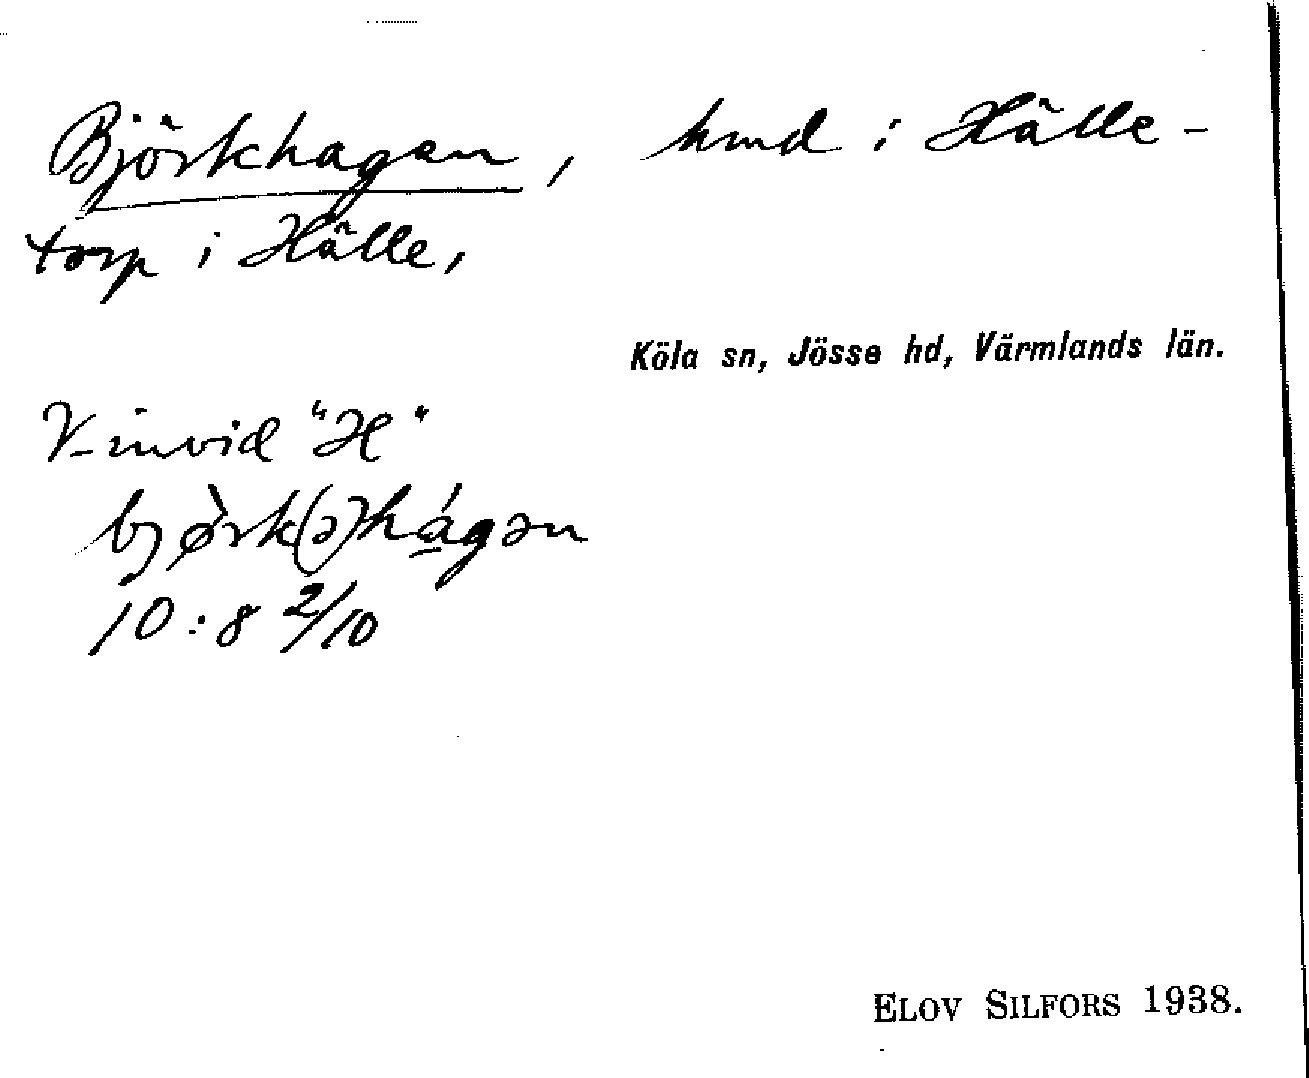 Björkhagen, hmd i Hälle-
torp i Hälle,
Köla sn, Jösse hd, Värmlands län.
V-invid "H"
bjø̀rk(ə)há̱gən
10:8 2/10
ELOV SILFORS 1938.